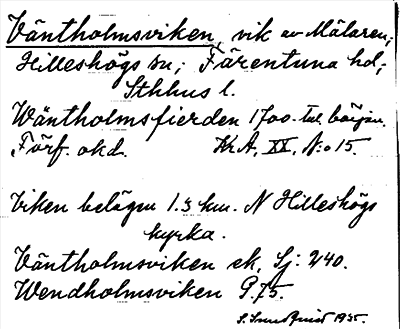 Väntholmsviken, vik av Mälaren;
Hilleshögs sn; Färentuna hd;
Sthlms l.
Wäntholmsfierden 1700-tal. början.
Förf. okd. Kr.A. XX, N:o 15.
Viken belägen 1.3 km. N Hilleshögs
kyrka.
Väntholmsviken ek. Sj: 240.
Wendholmsviken G 75.
1935.